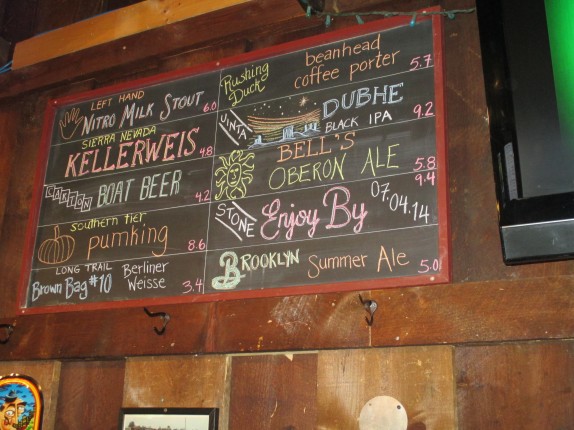 LEFT HAND
NITRO MILK STOUT 6.0
SIERRA NEVADA
KELLERWEIS 4.8
CARTON BOAT BEER 4.2
southern tier
pumking 8.6
LONG TRAIL Berliner
Brown Bag #10 Weisse 3.4
Rushing beanhead
Duck coffee porter 5.7
UINTA DUBHE
BLACK IPA 9.2
BELL'S
OBERON ALE 5.8
STONE Enjoy By 07.04.14 9.4
BROOKLYN Summer Ale 5.0